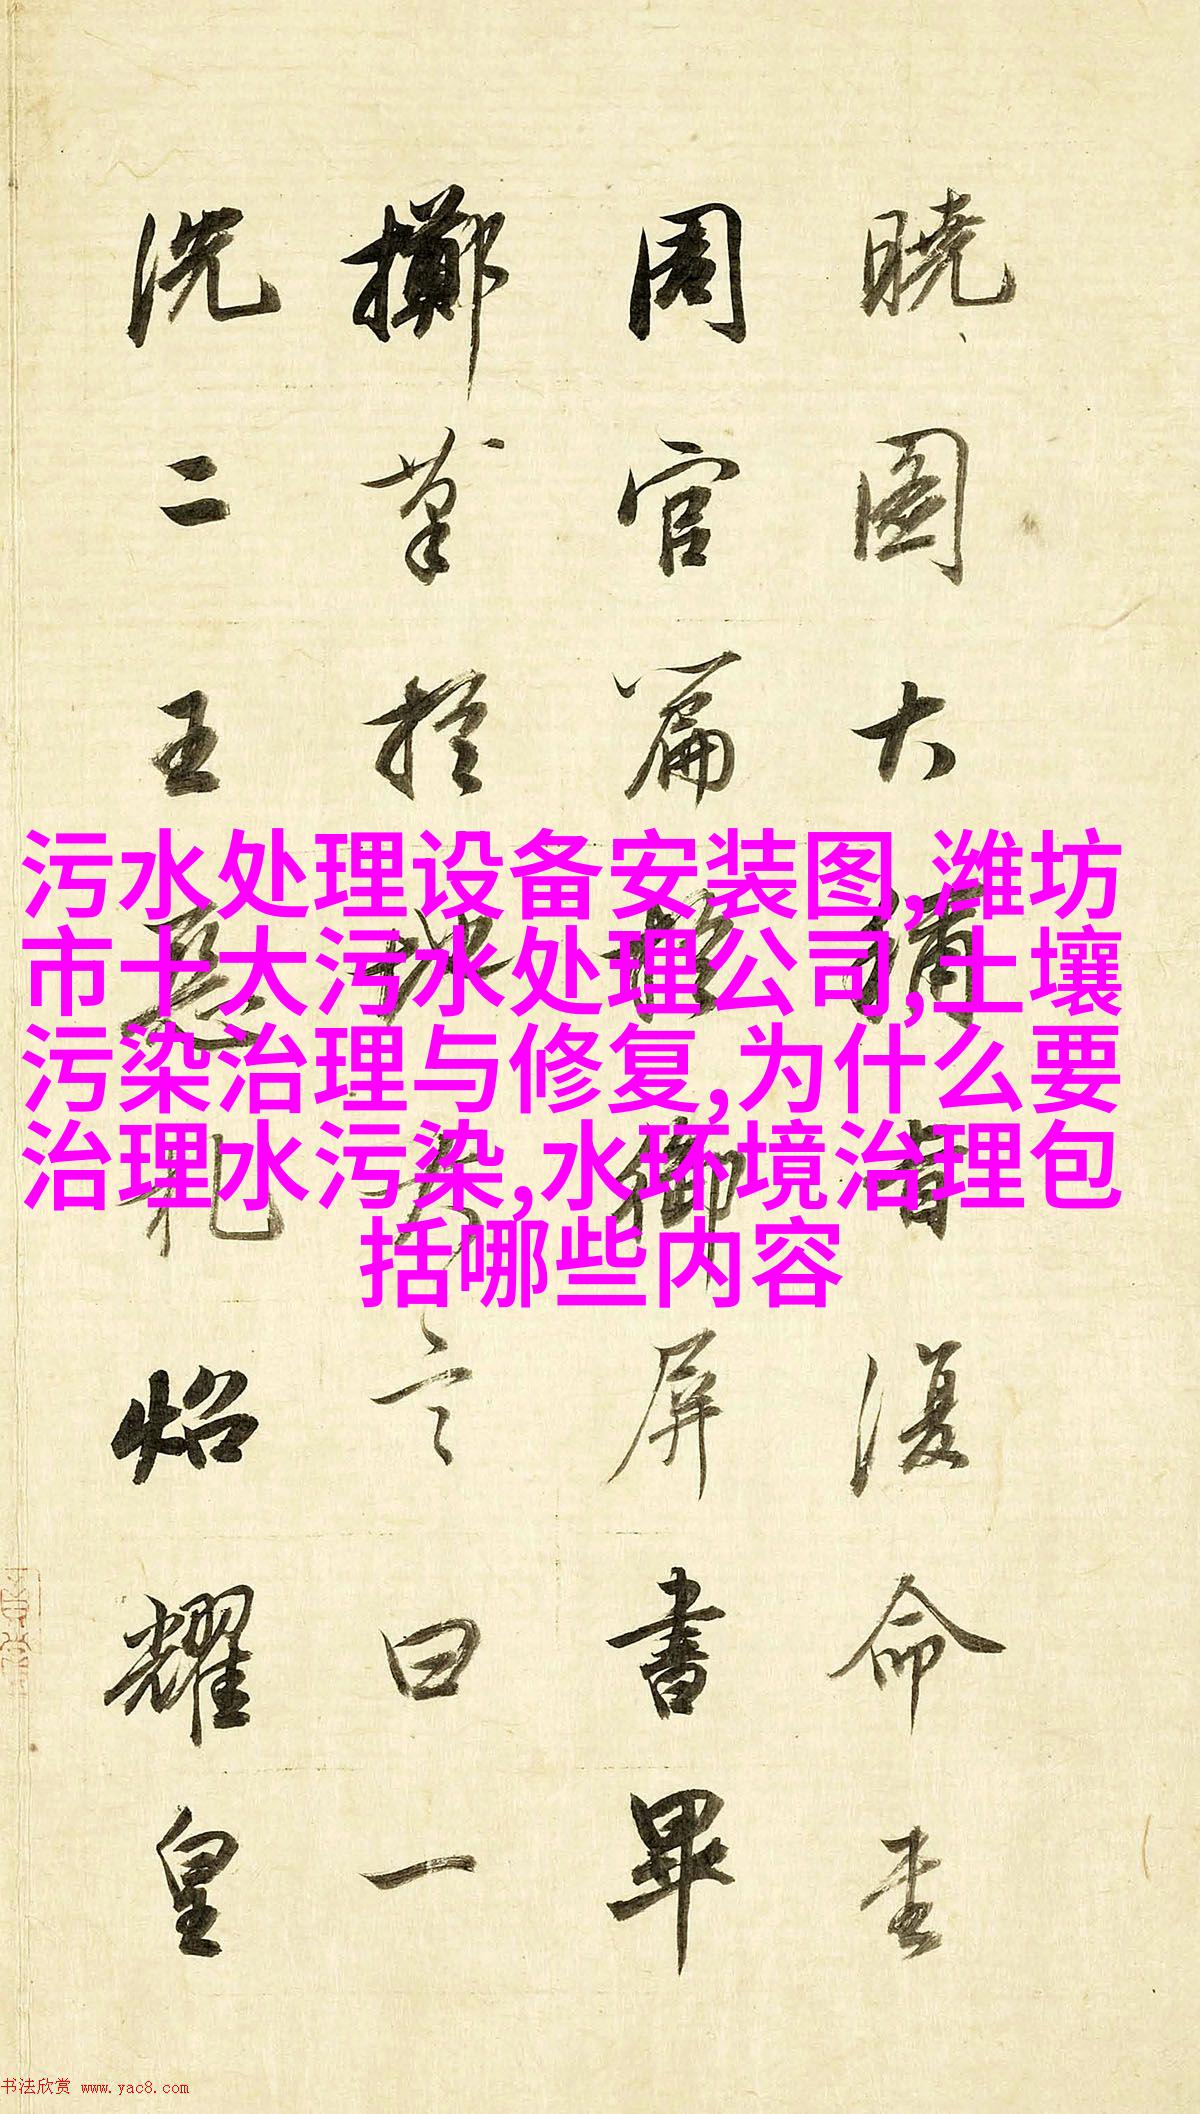 污水处理设备安装图,潍坊
市十大污水处理公司,土壤
污染治理与修复,为什么要
治理水污染,水环境治理包
括哪些内容
曉圖大復命
周官篇於御屏書畢
擲筆於地大言曰一
洗二王惡札炤耀皇
书法欣赏 www.yac8.com